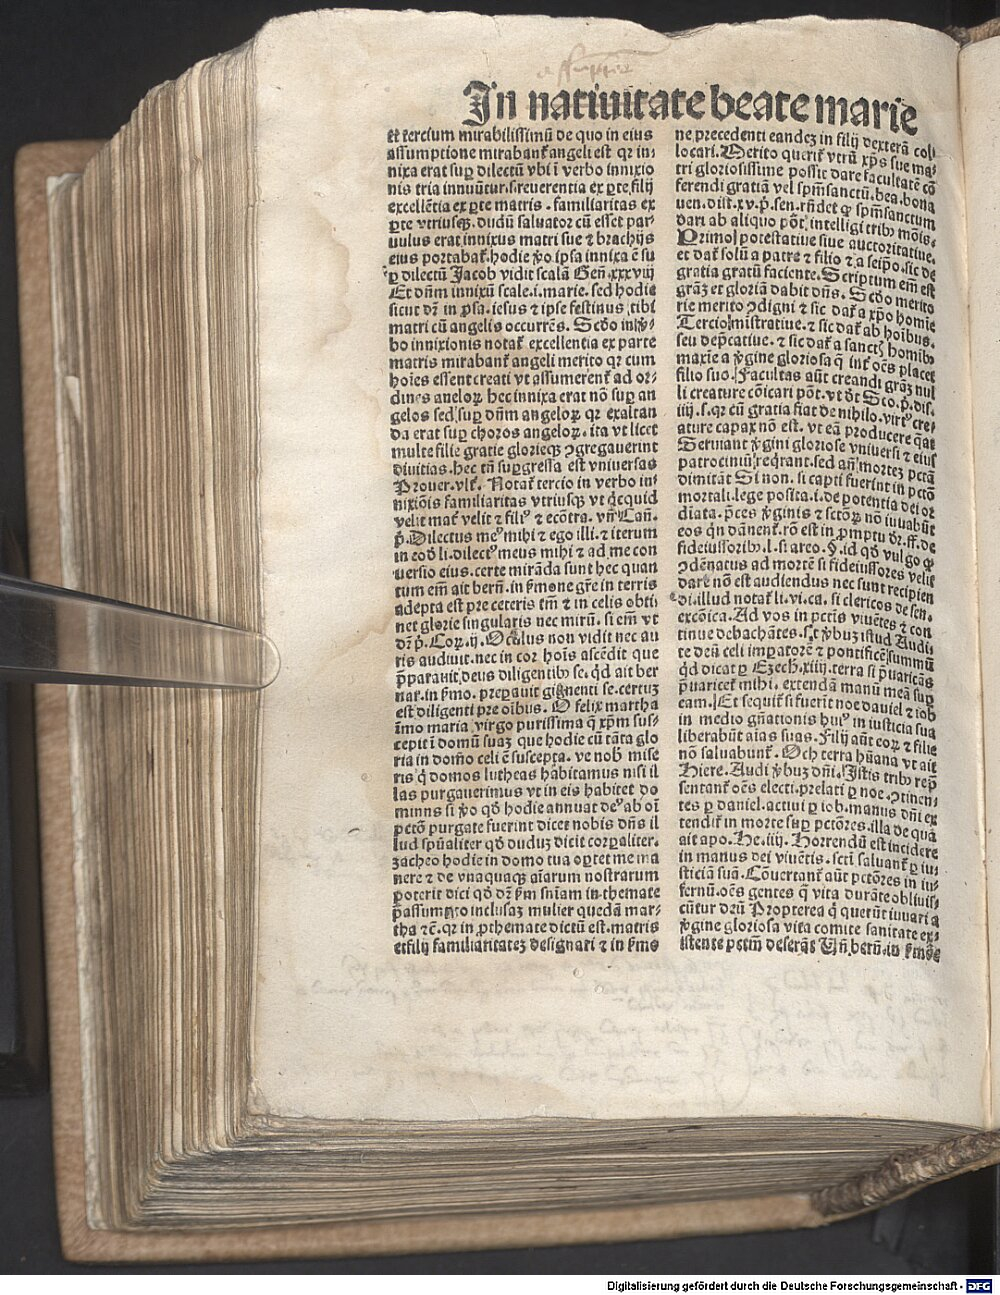 assumptio
In natiuitate beate marie
et tercium mirabilissimū de quo in eius
assumptione mirabanť angeli est qr in-
nixa erat suꝑ dilectū vbi ī verbo innixio
nis tria innuūtur.s.reuerentia ex ꝑte filij
excellētia ex ꝑte matris . familiaritas ex
ꝑte vtriusqꝫ. dudū saluator cū esset par-
uulus erat innixus matri sue ⁊ brachijs
eius portabať. hodie ꝟo ipsa innixa ē su
ꝑ dilectū Jacob vidit scalā Geñ.xxxviij
Et dn̄m innixū scale.i.marie. sed hodie
sicut dr̄ in ꝓsa. iesus ⁊ ipse festinus tibi
matri cū angelis occurrēs. Scd̓o in ꝟ-
bo innixionis notať excellentia ex parte
matris mirabanť angeli merito qr cum
hoīes essent creati vt assumerenť ad or-
dines āgeloꝝ hec innixa erat nō suꝑ an
gelos sed suꝑ dn̄m angeloꝝ qr exaltan
da erat suꝑ choros angeloꝝ. ita vt licet
multe filie gratie glorieqꝫ ꝯgregauerint
diuitias. hec tn̄ suꝑgressa est vniuersas
Prouer.vlt̓. Notať tercio in verbo in-
nixiōis familiaritas vtriusqꝫ vt qͥcquid
velit mať velit ⁊ filiꝰ ⁊ ecōtra. vn̄ Cañ.
ꝓ. Dilectus meꝰ mihi ⁊ ego illi. ⁊ iterum
in eod̄ li. dilectꝰ meus mihi ⁊ ad me con
uersio eius. certe mirāda sunt hec quan
tum em̄ ait berñ. in ẜmone gr̄e in terris
adepta est pre ceteris tm̄ ⁊ in celis obti
net glorie singularis nec mirū. si em̄ vt
dr̄ ꝓ. Coꝝ.ij. Oculus non vidit nec au
ris audiuit. nec in cor hoīs ascēdit que
p̄parauit deus diligentibꝰ se. qͥd ait ber
nar. in ẜmo. preꝑauit gignenti se. certuꝫ
est diligenti pre oībus. O felix martha
īmo maria virgo purissima q̄ xp̄m sus-
cepit ī domū suaꝫ que hodie cū tāta glo
ria in domo celi ē suscepta. ve nob̓ mise
ris qͥ domos luteas habitamus nisi il
las purgauerimus vt in eis habitet do
minus si ꝟo qd̓ hodie annuat deꝰ ab oī
pctō purgate fuerint dicet nobis dn̄s il
lud spūaliter qd̓ duduꝫ dicit corꝑaliter.
zacheo hodie in domo tua oꝑtet me ma
nere ⁊ de vnaquaqꝫ aīarum nostrarum
poterit dici qd̓ dr̄ ẜm sn̄iam in themate
p̄assumpto inclusaꝫ mulier quedā mar-
tha ⁊c̄. qr in ꝓthemate dictū est. matris
et filij familiaritateꝫ designari ⁊ in ẜmo
ne precedenti eandeꝫ in filij dexterā col-
locari. Merito queriť vtrū xp̄s sue ma-
tri gloriosissime possit dare facultatē cō
ferendi gratiā vel spm̄sanctū. bea. bona
uen. dist.xv.p̄.sen. rn̄det ꝙ spm̄sanctum
dari ab aliquo pōt intelligi tribꝰ mōis.
Primo potestatiue siue auctoritatiue.
et dať solū a patre ⁊ filio ⁊ a seipō. sic de
gratia gratū faciente. Scriptum em̄ est
grāꝫ et gloriā dabit dn̄s. Scd̓o merito
rie merito ꝯdigni ⁊ sic dať a xp̄o homīe
Tercio mīstratiue. ⁊ sic dať ab hoībus.
seu dep̄catiue. ⁊ sic dať a sanctꝭ homībꝰ
maxīe a ꝟgine gloriosa q̄ int̓ oēs placet
filio suo. Facultas aūt creandi grāꝫ nul
li creature cōicari pōt. vt dt̄ Sco.p̄.dis.
iiij.s.qr cū gratia fiat de nihilo. virtꝰ cre-
ature capax nō est. vt eā producere q̄at
Seruiant ꝟgini gloriose vniuersi ⁊ eiꝰ
patrociniū reqͥrant. sed an̄ morteꝫ pctā
dimitāt Si non. si capti fuerint in pctō
mortali. lege posita.i.de potentia dei or
diata. p̄ces ꝟginis ⁊ sctōꝝ nō iuuabūt
eos qͥn dānenť. rō est in ꝓmptu dr̄.ff.de
fideiussoribꝰ.l.si areo.§.id qd̓ vulgo ꝙ
ꝯdēnatus ad mortē si fideiussores velit
dare nō est audiendus nec sunt recipien
di. illud notať li.vi.ca. si clericos de sen.
excōica. Ad vos in pctīs viuētes ⁊ con
tinue debachātes. sit ꝟbuꝫ istud Audi-
te deū celi impatorē ⁊ pontificē summū
qͥd dicat ꝑ Ezech.xiiij. terra si p̄uaricās
p̄uaricet mihi. extendā manū meā suꝑ
eam. Et sequiť si fuerit noe daniel ⁊ iob
in medio gn̄ationis huiꝰ in iusticia sua
liberabūt aīas suas. Filij aūt eoꝝ ⁊ filie
nō saluabunť. Och terra hūana vt ait
Hiere. Audi ꝟbuꝫ dn̄i. Istis tribꝰ rep̄
sentanť oēs electi. prelati ꝑ noe. ꝯtinen-
tes ꝑ daniel. actiui ꝑ iob. manus dn̄i ex
tendiť in morte suꝑ pctōres. illa de qua
ait apo. He.iiij. Horrendū est incidere
in manus dei viuētis. sctī saluanť ꝑ iu-
sticiā suā. Cōuertanť aūt pctōres in in-
fernū. oēs gentes q̄ vita durāte obliuis-
cūtur deū Propterea qͥ querūt iuuari a
ꝟgine gloriosa vita comite sanitate exi-
stente pctm̄ deserāt Vn̄ berñ. in ẜmōe
Digitalisierung gefördert durch die Deutsche Forschungsgemeinschaft - DFG